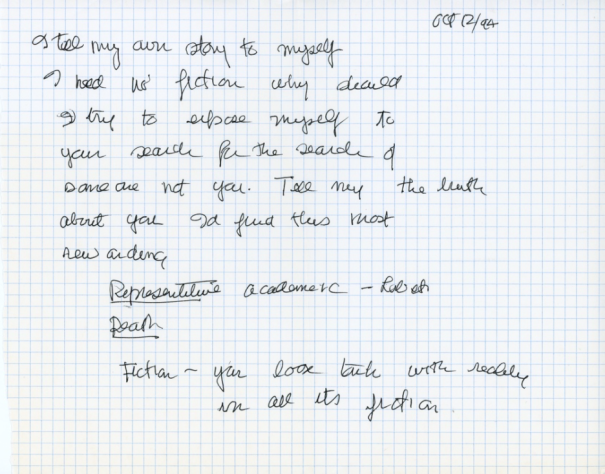 Oct 12/94
I tell my own story to myself
I need no fiction why should
I try to expose myself to
your search for the search of
some one not you. Tell my the truth
about you I'd find this most
rewarding
Representitive academic -
Death
Fiction - you loose touch with reality
in all its fiction.